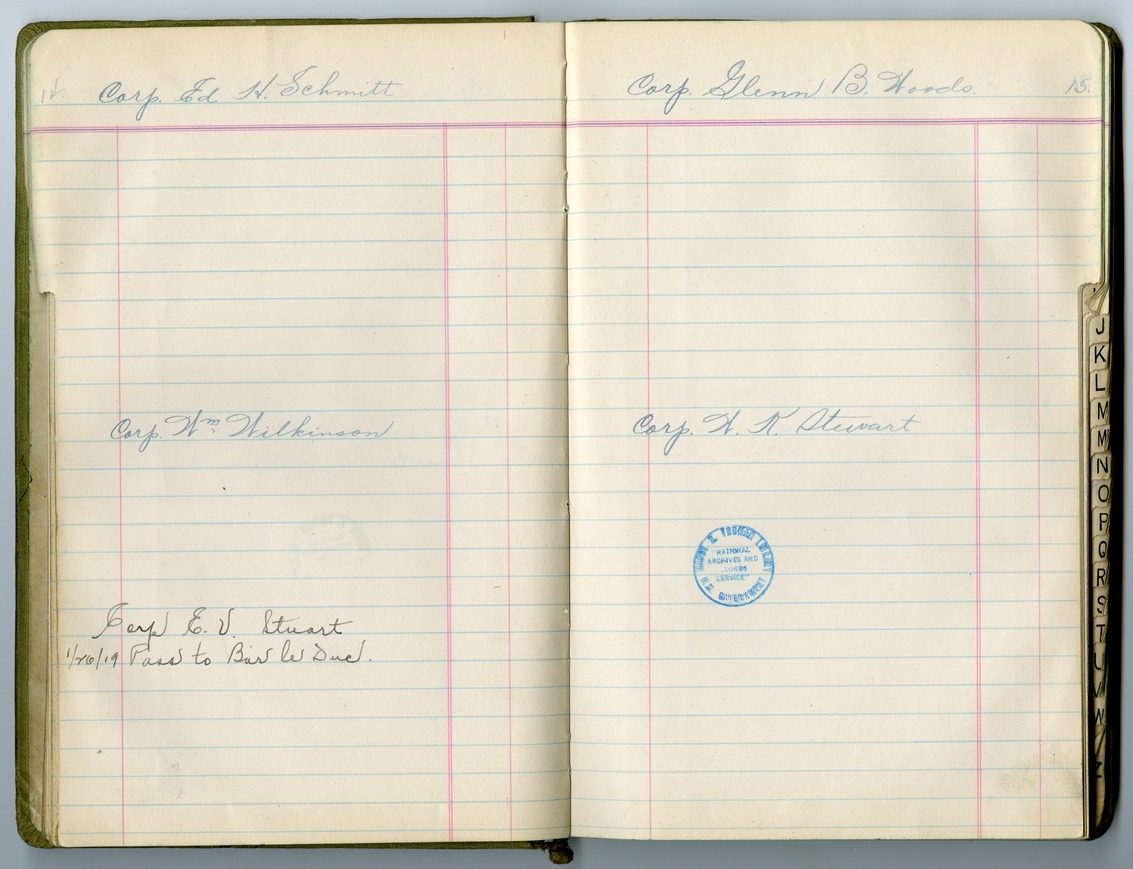 Corp. Ed H. Schmitt
Corp. Wm Wilkinson
Corp E. V. Stuart
1/26/19 Pass to Bar le Duc.
Corp. Glenn B. Woods. 15.
Corp. W. K. Stewart
HARRY S. TRUMAN LIBRARY
"NATIONAL
ARCHIVES AND
SERVICE"
U.S. GOVERNMENT
J
K
L
M
M
N
O
P
Q
R
S
T
U
V
W
Z